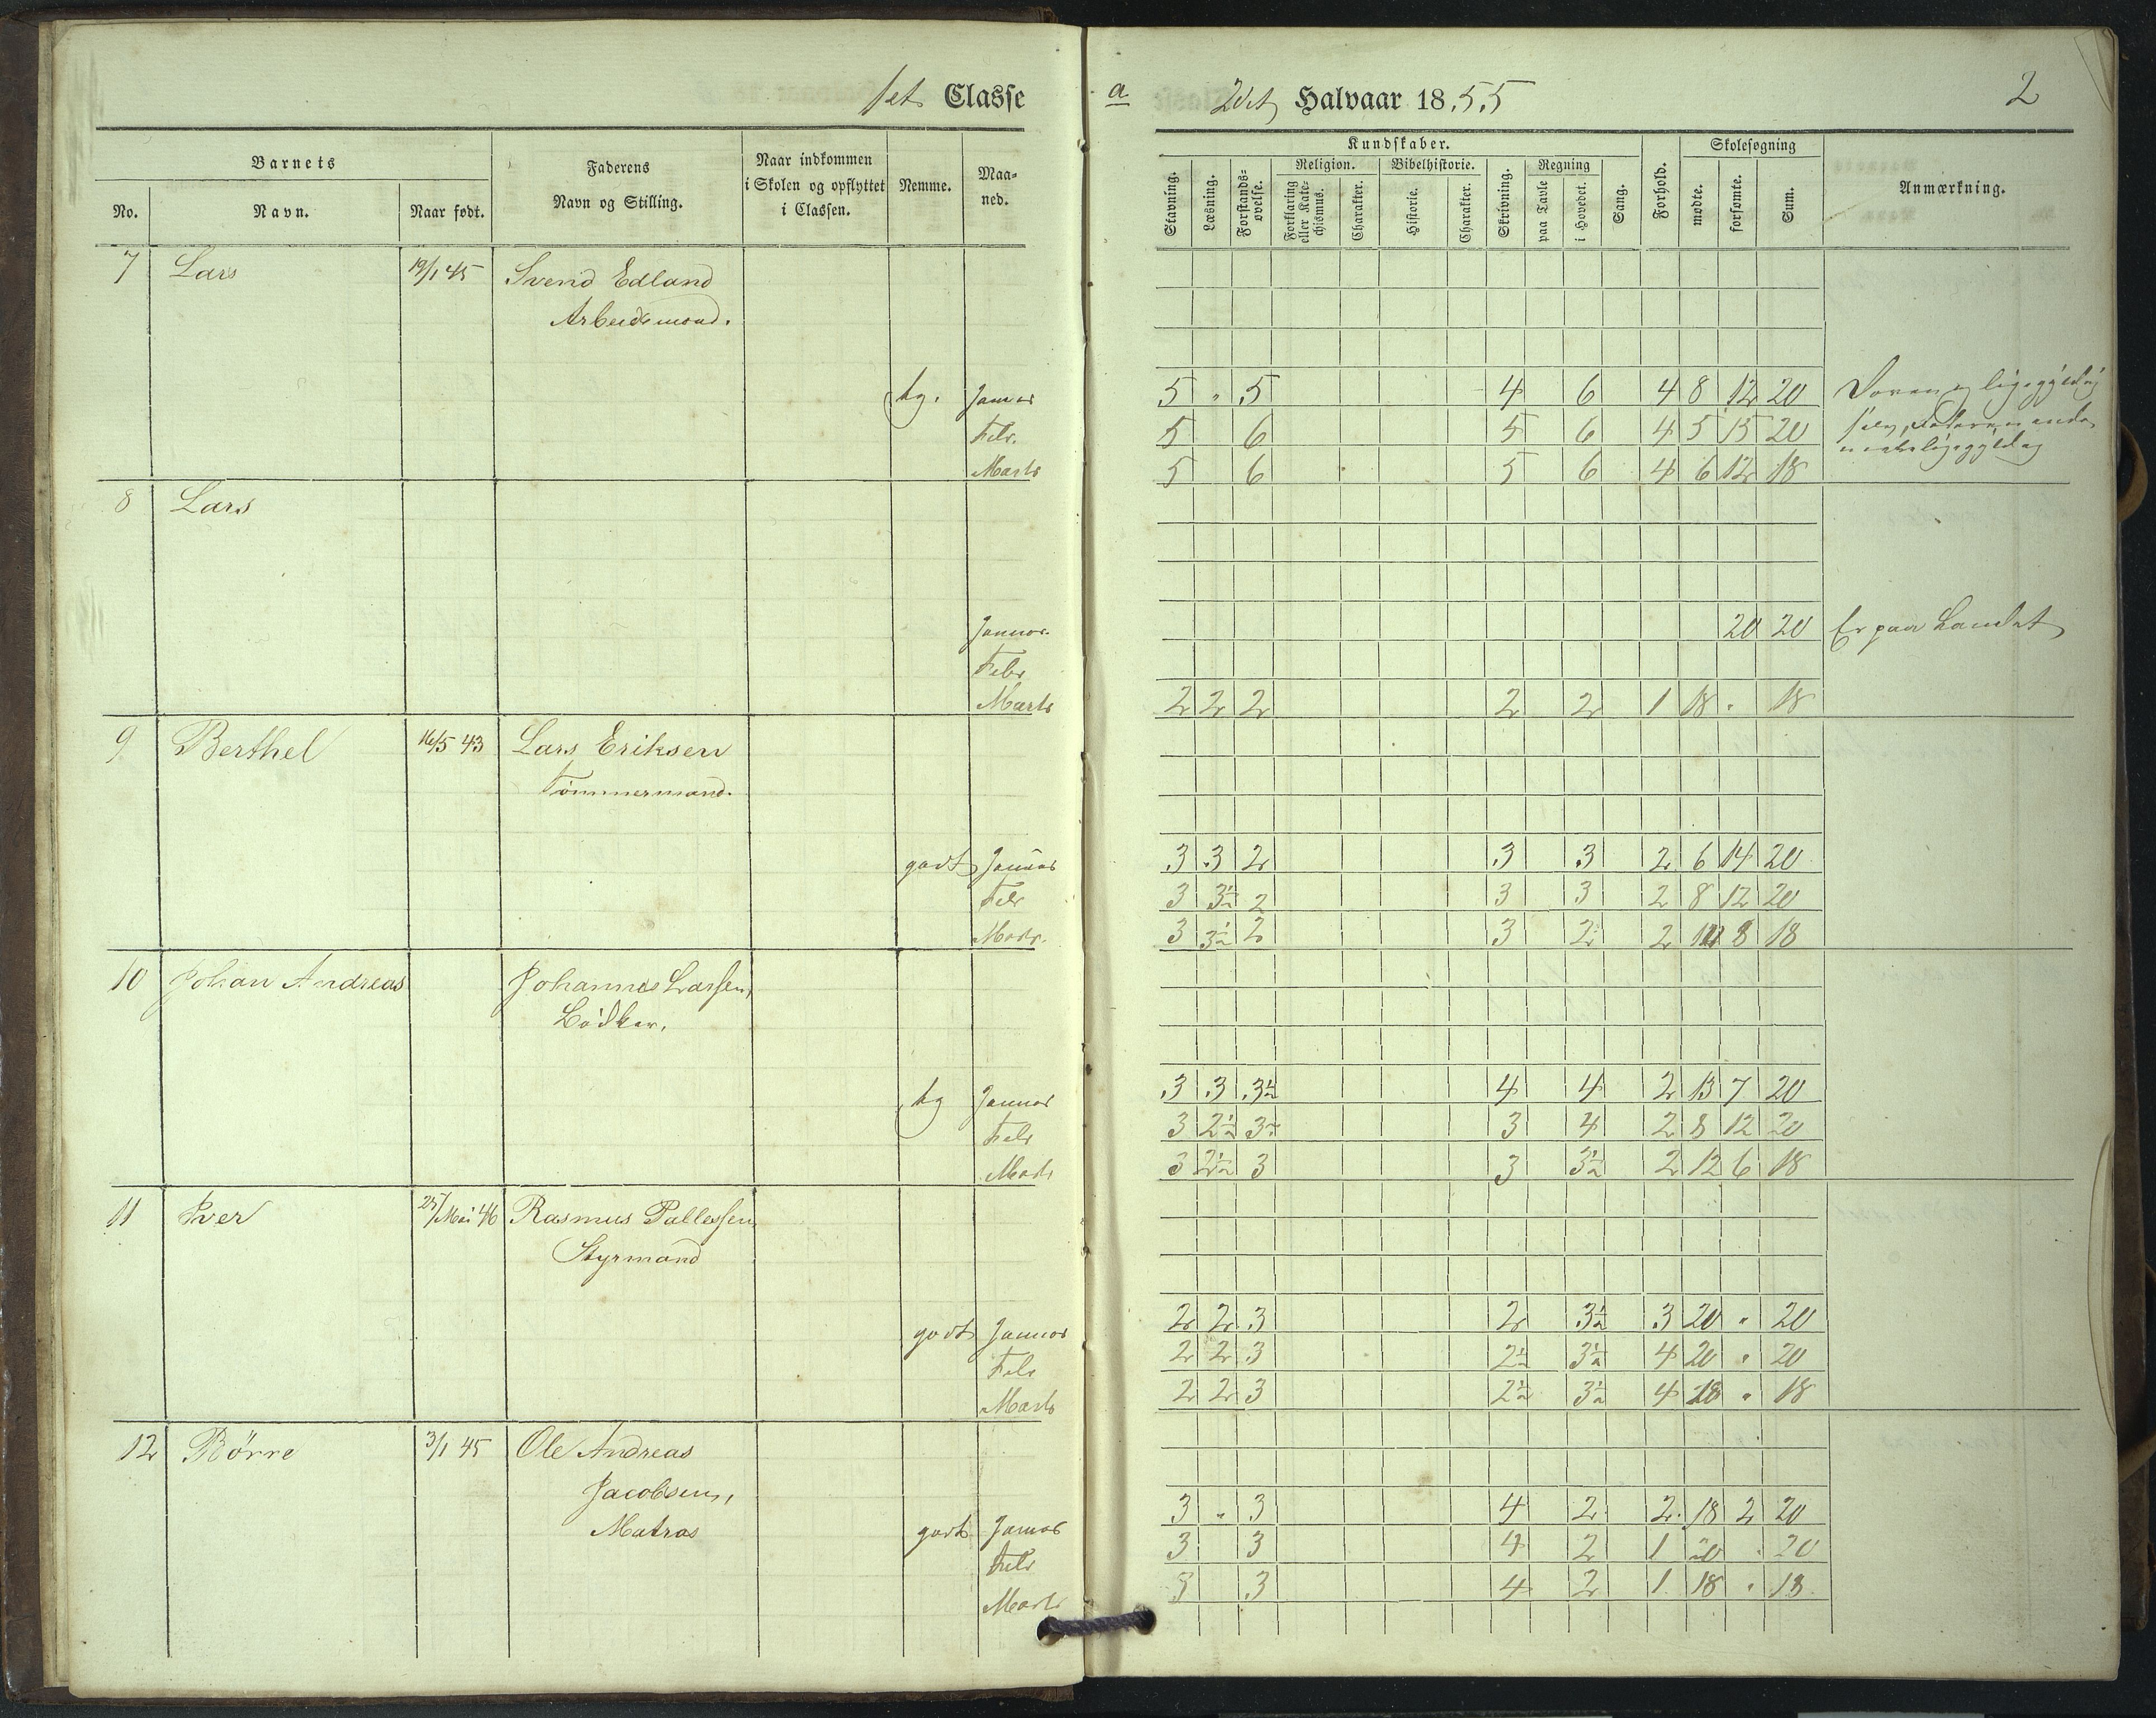 1st Classe
a 2det Halvaar 18 55
2
Barnets
Faderens
Navn og Stilling.
Naar indkommen
i Skolen og opflyttet
i Classen.
Nemme.
Maa-
ned.
No.
Navn.
Naar født.
Kundskaber.
Skolesøgning
Religion.
Bibelhistorie.
Regning
Stavning.
Læsning.
Forstands-
øvelse.
Forklaring
eller Kate-
chismus.
Charakter.
Historie.
Charakter.
Skrivning.
paa Tavle
i Hovedet.
Sang.
Forhold.
mødte.
forsømte.
Sum.
Anmærkning.
7 Lars 19/1 45 Svend Edland
Arbeidsmand.
tg. Januar 5 " 5 4 6 4 8 12 20
Febr. 5 6 5 6 4 5 15 20
Marts 5 6 5 6 4 6 12 18
8 Lars
Januar 20 20 Er paa Landet
Febr
Marts 2 2 2 2 2 1 18 " 18
9 Berthel 16/5 43 Lars Eriksen
Tømmermand.
godt Januar 3 3 2 3 3 2 6 14 20
Febr 3 3½ 2 3 3 2 8 12 20
Marts 3 3½ 2 3 2 2 10 8 18
10 Johan Andreas Johannes Larsen,
Bødker.
tg Januar 3 3 3½ 4 4 2 13 7 20
Febr 3 2½ 3½ 3 4 2 8 12 20
Marts 3 2½ 3 3 3½ 2 12 6 18
11 Iver 25/Mai 46 Rasmus Pallesen
Styrmand
godt Januar 2 2 3 2 3½ 3 20 " 20
Febr 2 2 3 2½ 3½ 4 20 " 20
Marts 2 2 3 2½ 3½ 4 18 " 18
12 Børre 3/1 45 Ole Andreas
Jacobsen,
Matros
godt Januar 3 " 3 4 2 2 18 2 20
Febr 3 3 4 2 1 20 " 20
Marts 3 3 4 2 1 18 " 18